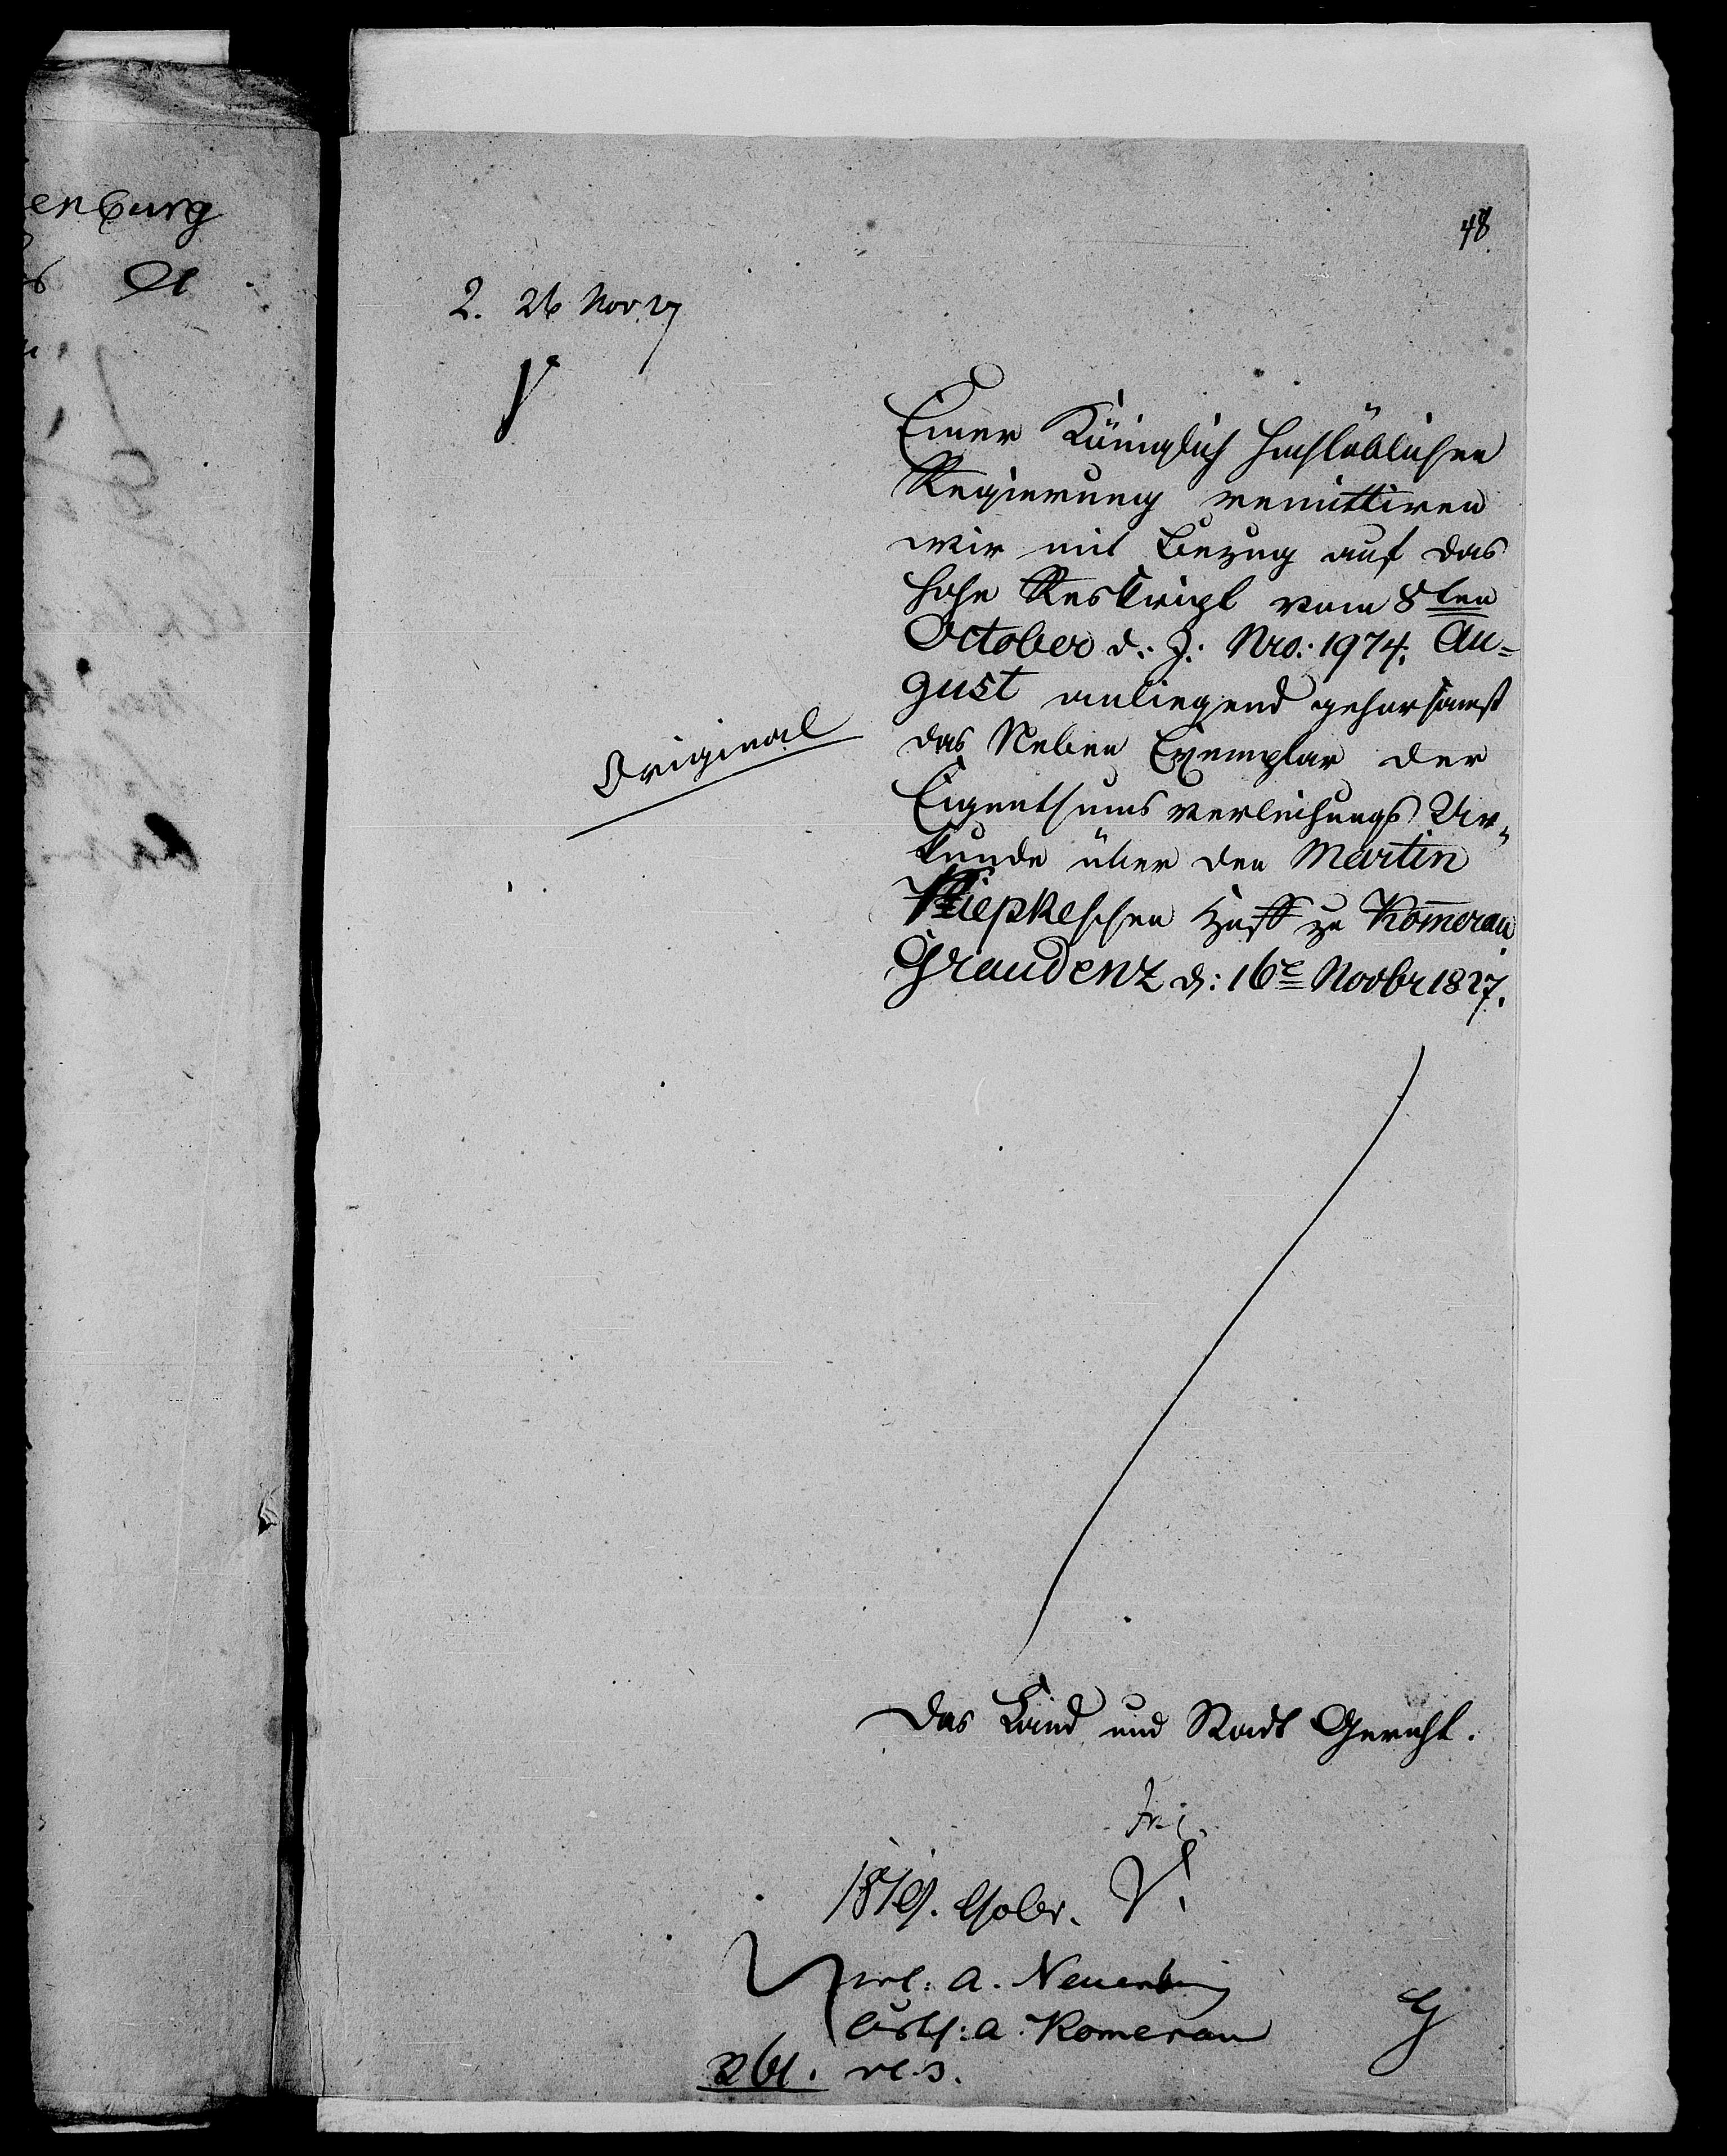 enburg
48
2. 26 Nov 27
Einer Königlich Hochlöblichen
Regierung remittiren
wir mit Bezug auf das
hohe Reskript vom 8ten
October d: J: Nro: 1974. Au=
gust anliegend gehorsamst
Original
das Neben Exemplar der
Eigenthums verleihungs Ur„
kunde über den Martin
Kiepkeschen Hoff zu Kom̄erau
Graudenz d: 16t Novbr 1827.
Das Land und Stadt Gericht.
a. Neuenburg
a. Komerau
261.